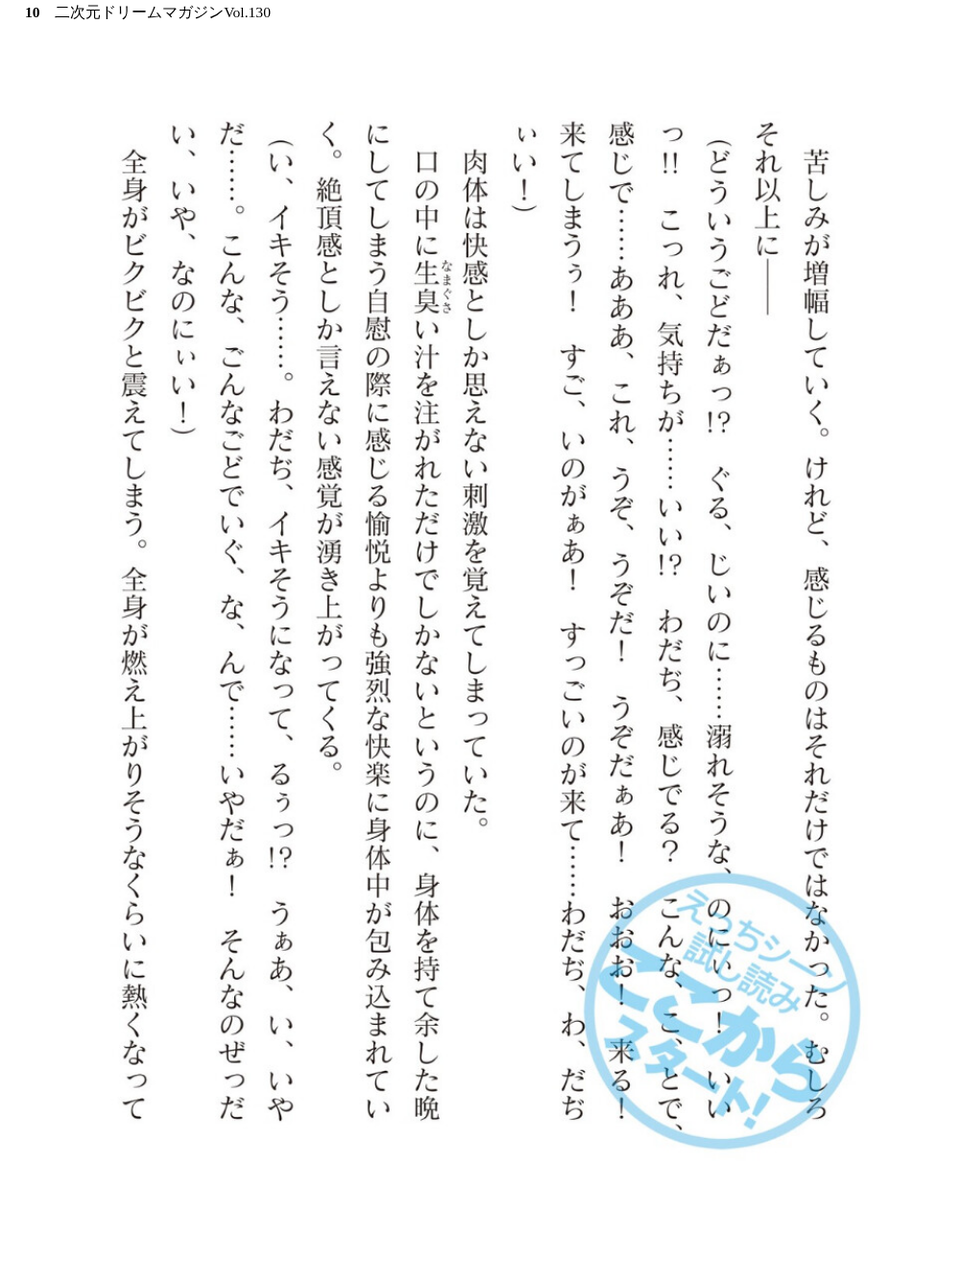 10 二次元ドリームマガジンVol.130
　苦しみが増幅していく。けれど、感じるものはそれだけではなかった。むしろ
それ以上に――
（どういうごどだぁっ!?　ぐる、じいのに……溺れそうな、のにぃっ！　いい
っ!!　こっれ、気持ちが……いい!?　わだぢ、感じでる？　こんな、こ、とで、
感じで……あああ、これ、うぞ、うぞだ！　うぞだぁあ！　おおお！　来る！
来てしまうぅ！　すご、いのがぁあ！　すっごいのが来て……わだぢ、わ、だぢ
ぃい！）
　肉体は快感としか思えない刺激を覚えてしまっていた。
　口の中に生臭い汁を注がれただけでしかないというのに、身体を持て余した晩
なまぐさ
にしてしまう自慰の際に感じる愉悦よりも強烈な快楽に身体中が包み込まれてい
く。絶頂感としか言えない感覚が湧き上がってくる。
（い、イキそう……。わだぢ、イキそうになって、るぅっ!?　うぁあ、い、いや
だ……。こんな、ごんなごどでいぐ、な、んで……いやだぁ！　そんなのぜっだ
い、いや、なのにぃい！）
　全身がビクビクと震えてしまう。全身が燃え上がりそうなくらいに熱くなって
えっちシーン
試し読み
ここから
スタート！